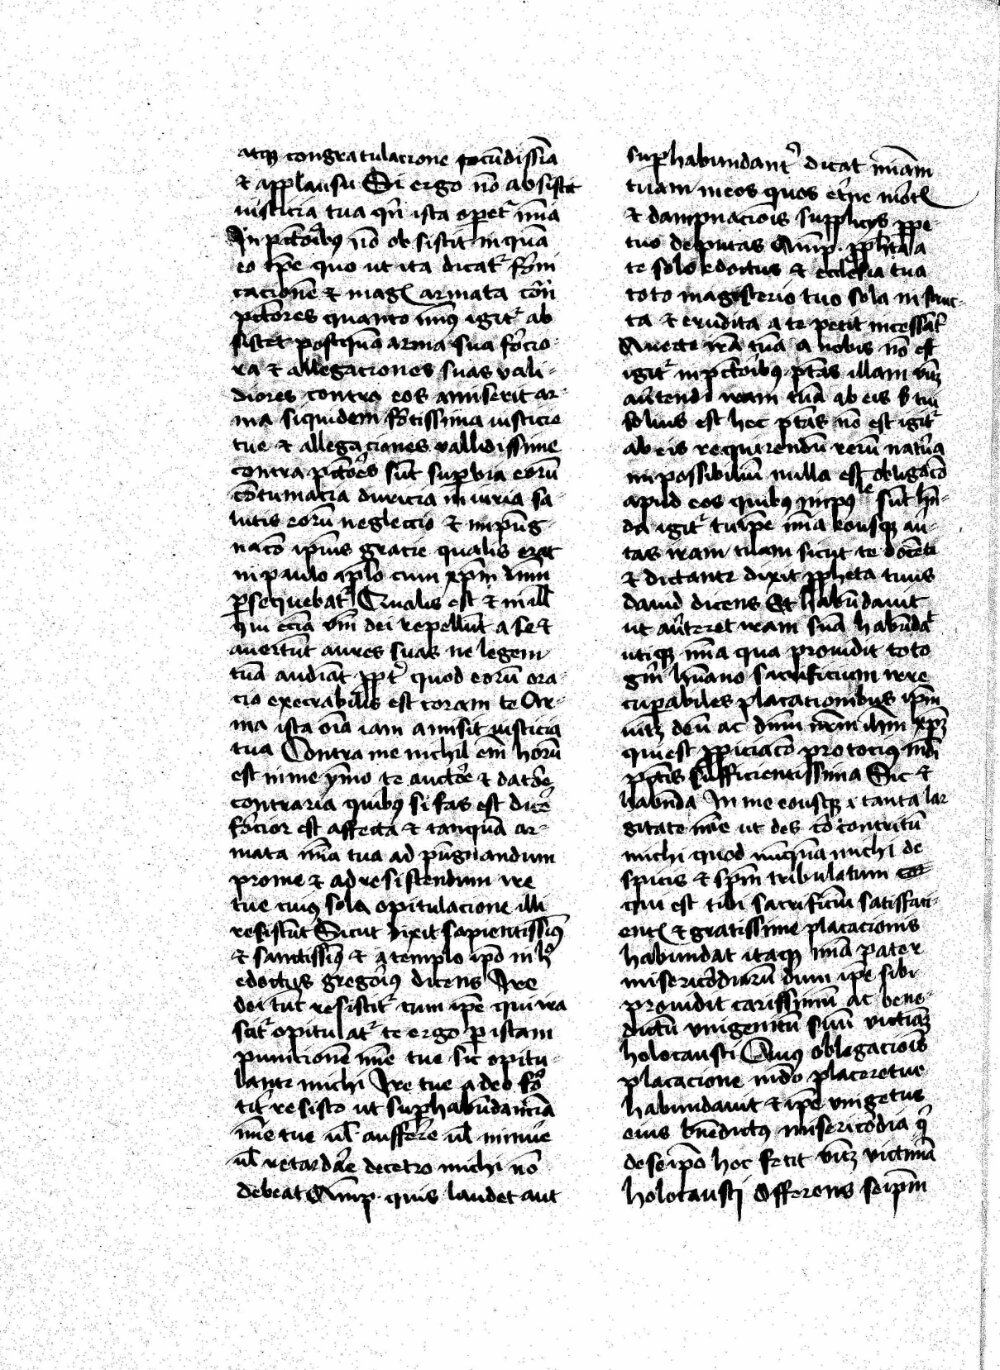 atque congratulacione jocu̅dissi̅a
et applausu Si ergo no̅ absistit
iusticia tua qn̅ ista operet᷑ mi̅a
In pctōribꝰ nō obsistit inquā
eo tp̅e quo ut ita dicat᷑ for̅ni
cacione̅ et magꝭ armata cōn̅
pctōres quanto minꝰ igit᷑ ab
sistet postquā arma sua forcio-
ra et allegaciones suas vali-
diores contra eos amiserit ar-
ma siquidem fortissima iusticie
tue et allegaciones vallidissime
contra pctōres sūt supbia eorū
cōtumacia duricia iniuria sa-
lutis eorū neglectio et inpūg-
nacō ip̅ius gracie qualis erat
in paulo aplō cum xp̅m dn̅m
ꝑsequebat᷑ Qualis est et in ill̅
qui ecia̅ vm̅ dei repellūt a se et
avertūt aures suas ne legem
tuā audiāt ꝓpt᷑ quod eorū ora-
cio execrabilis est coram te Ar-
ma ista oīa iam amisit iusticia
tua Contra me nichil em̅ horū
est in me ymo te auctōe et datōe
contraria quibꝰ si fas est dice̅
forcior est affecta et tanquā ar-
mata mi̅a tua ad pūgnandum
pro me et ad resistendum ire
tue cuiꝰ sola opitulacione illi
resistūt Sicut dixit sapientissimꝰ
et sanctissimꝰ et a templo ip̅o in hꝰ
edoctus gregoriꝰ dicens Ire
dei tūc resistit᷑ cum ip̅e qui ira
scit᷑ opitulat᷑ te ergo ꝑ istam
punicione̅ mi̅e tue sic opitu-
lante michi Ire tue adeo for
tit᷑ resisto ut suphabūdanciā
mi̅e tue ul̅ aufferre ul̅ minue̅
ul̅ retardare decetro michi nō
debeat Amp. quis laudet aut
suphabundant᷑ dicat mi̅am
tuam in eos quos et᷑ne mortꝭ
et dampnaciōis suppliciis ꝑpe-
tuo deputas Amp. ꝓpheta a
te solo edoctus et ecclesia tua
toto magisterio tuo sola instruc-
ta et erudita a te petit incessāt᷑
Averte irā tuā a nobis nō est
igit᷑ in pctōribꝰ ptās illam vtꝫ
avertendi iram tuā ab eis sꝫ tui
solius est hec ptās nō est igit᷑
ab eis requirendū rerū natura
impossibiliū nulla est obligacō
apud eos quibꝰ impoˡᵉ sūt hn̅-
da igit᷑ tu ip̅e mi̅a eousqꝫ aver-
tas iram tuam sicut te docēte
et dictante dixit ꝓpheta tuus
david dicens Et habūdavit
ut averteret iram suā habūdat
utiqꝫ mi̅a qua providit toto
gn̅i hūano sacrificium irre
cupabiles placacionibus ip̅m
vitꝫ deū ac dn̅m nr̅m ihm̅ xp̅m
qui est ꝓpiciacō pro tocius mūdi
pctīs sufficientissima Sic et
habūda In me eousqꝫ et tanta lar
gitate mi̅e ut des cō contritū
michi quod nūquā michi de
spicis et spm̅ tribulatum
qui est tibi sacrificiū satisfaci-
entꝭ et gratissime placacionis
habundat itaqꝫ mi̅a pater
misericōdiarū dum ip̅e sibi
providit carissimū ac bene-
dictū unigenitū suū victimā
holocausti Cuius oblegaciōis
placacione mūdo placoretue
habundavit et ip̅e unigetus
eius bn̅edictꝰ misericōdia q̄
de seip̅o hoc fecit vitꝫ victimā
holocausti Offerens seip̅m